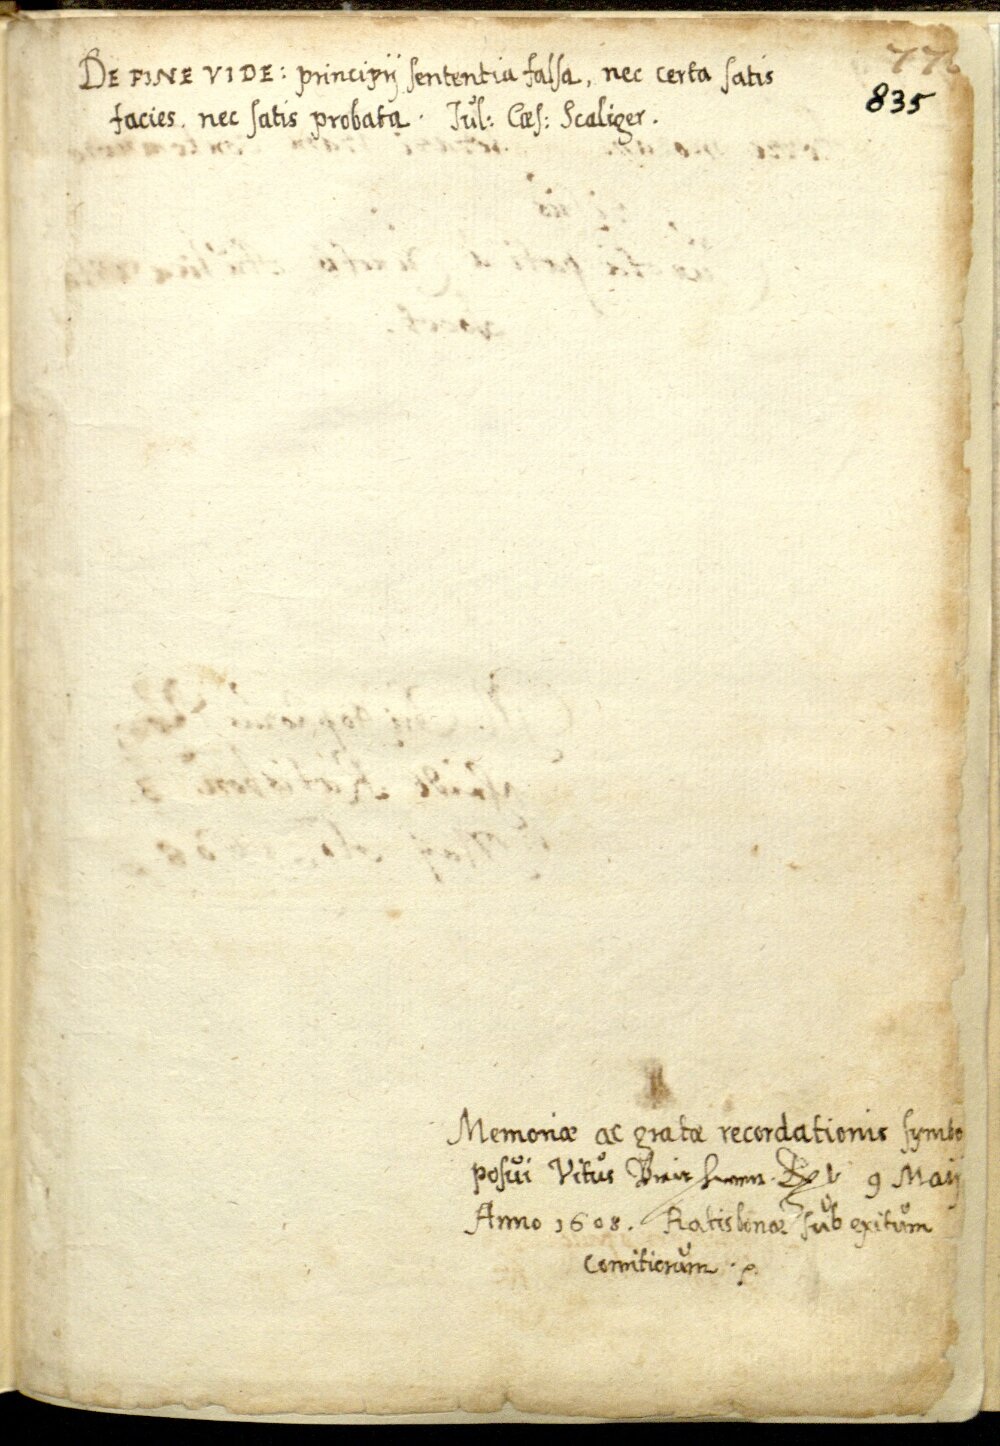 776
835
DE FINE VIDE: principij sententia falsa, nec certa satis
facies, nec satis probata. Jul: Cæs: Scaliger.
Memoriæ ac gratæ recordationis symbo
posui Vitus 9 Maij
Anno 1608. Ratisbonæ sub exitum
comitiorum.